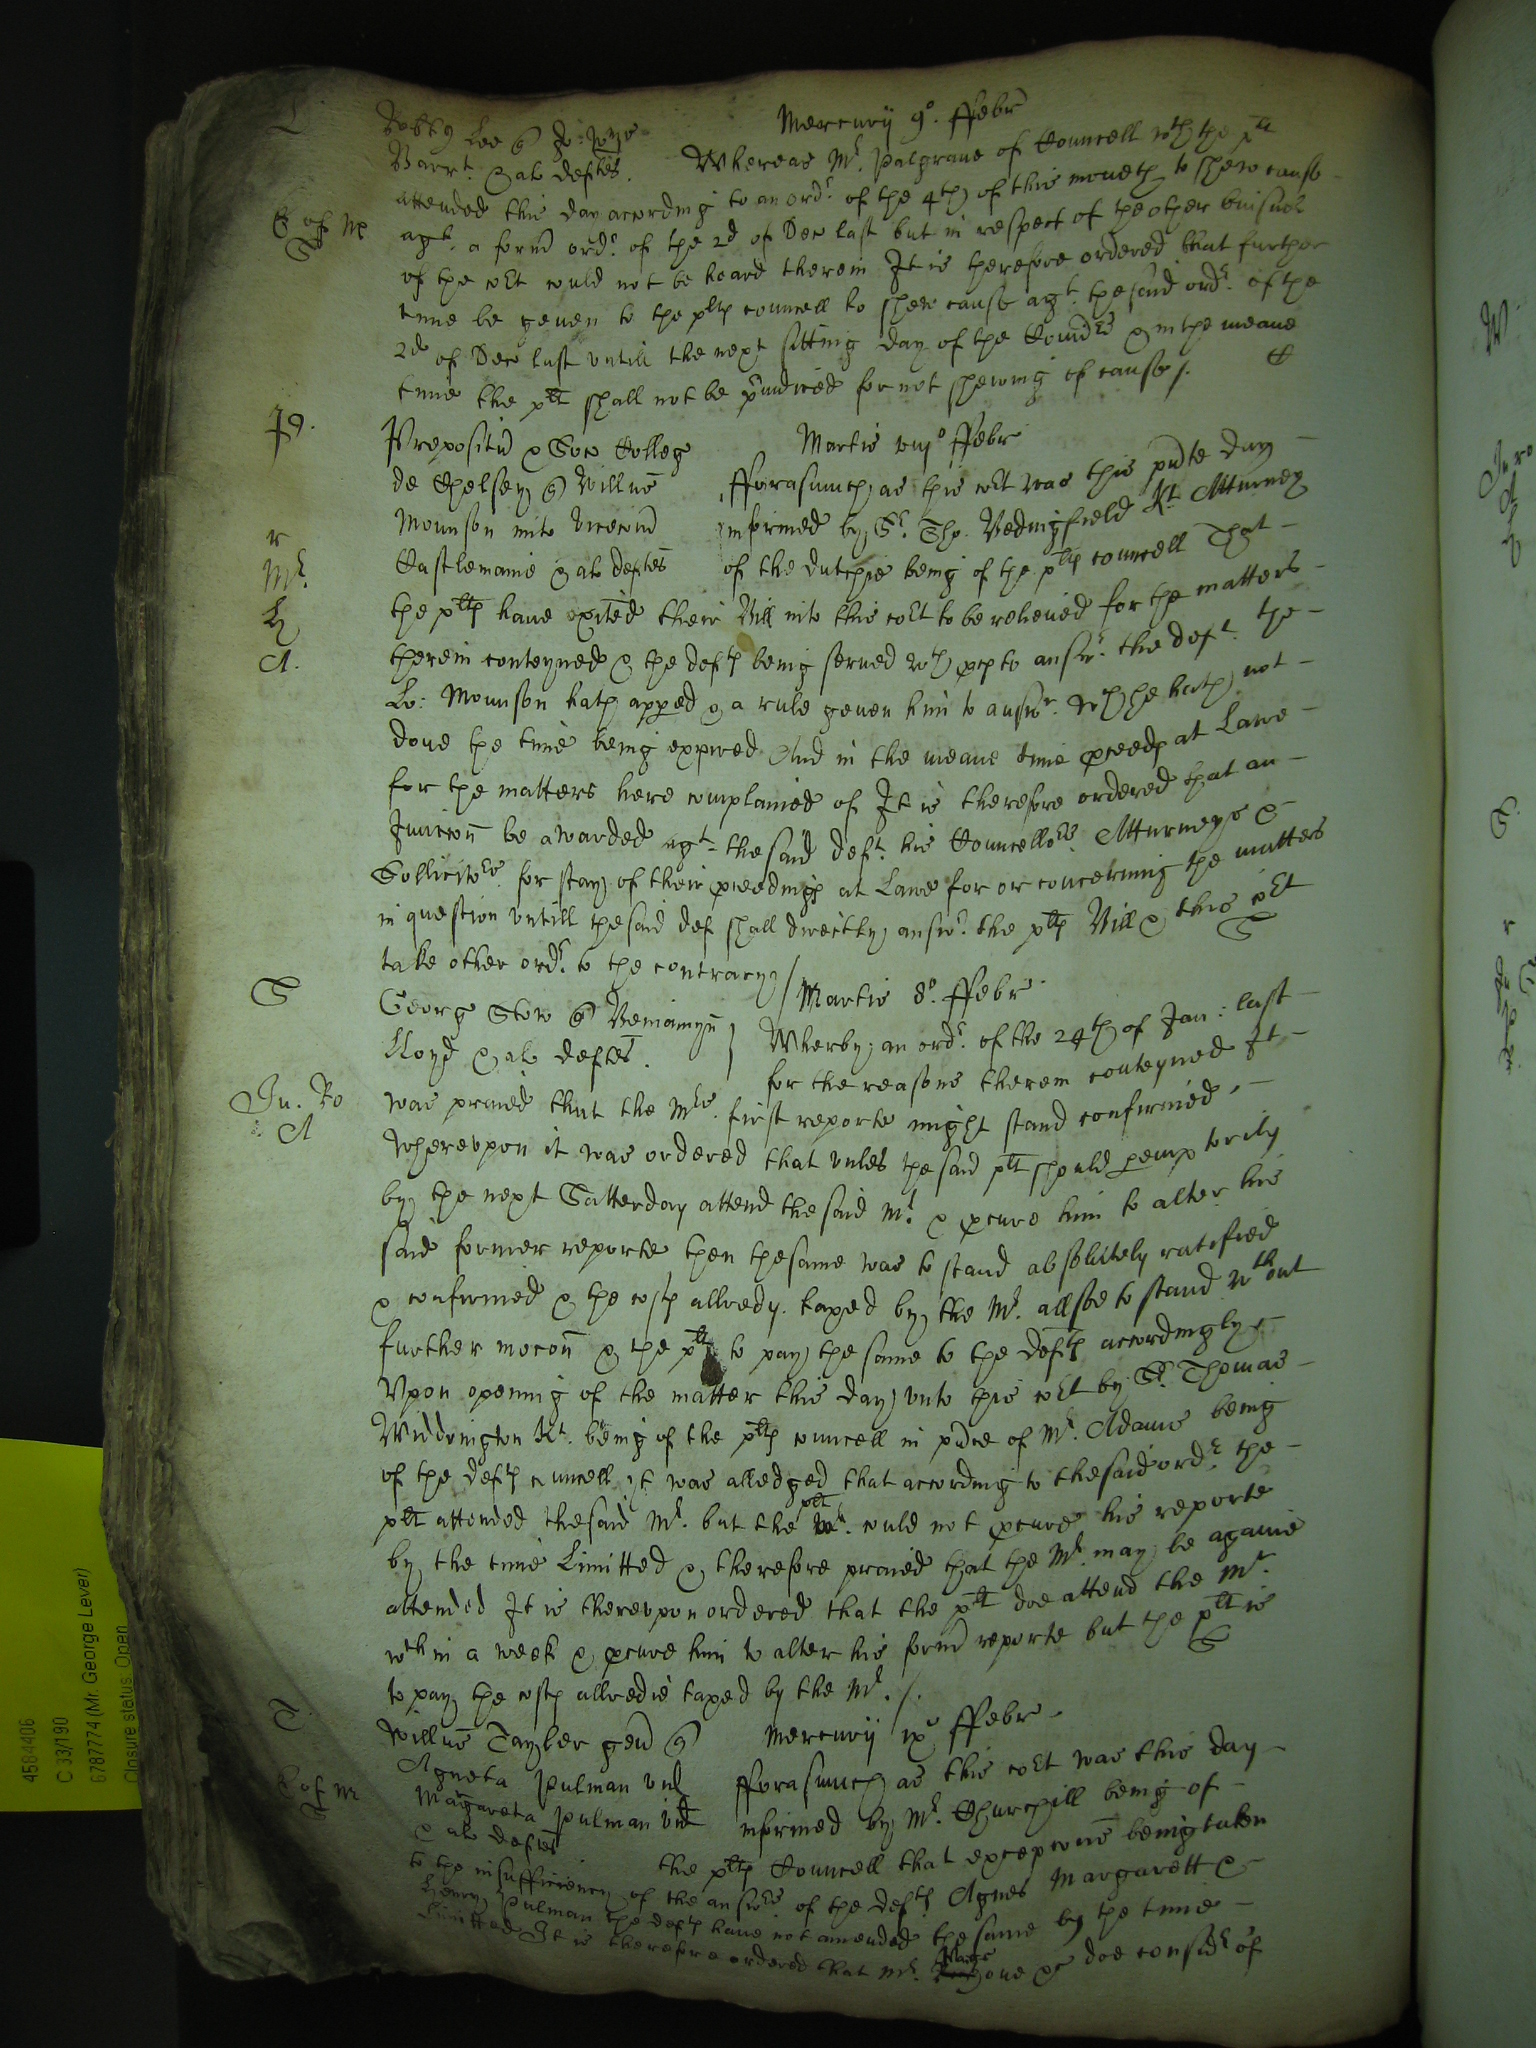 L
Mercurij 9o. ffebr
Lee
Barrt. & als deftes. Whereas Mr. Palgrave of Councell wth the plt
attended this day according to an ordr. of the 4th of this moneth to shew cause
agt. a form ordr. of the 2d of Dec last but in respect of the other buisnes
of the Cort could not be heard therein It is therefore ordered that further
time be geven to the plts councell to shew cause agt. the said ordr. of the
2d of Dec last untill the next sitting day of the & in the meane
time the plt shall not be p'iudiced for not shewing of cause /.
Martis viijo ffebr
Prepositus & Soc Colleg
de Chelsey Willus
Mounson
Castlemaine & als deftes
fforasmuch as this Cort was this pnte day
informed by Sr. Tho. Bedingfield Kt. Atturney
of the Dutchie being of the plts councell That
the plts have exited their Bill into this Cort to be releived for the matters
therein conteyned & the defts being served wth pces to answr. the deft. the
Lo: Mounson hath apped & a rule geven him to answr. wch he hath not
done the time being expired And in the meane time pceeds at Lawe
for the matters here complained of It is therefore ordered that an
Iniuccon be awarded agt. the said deft. his Councellors Atturneyes &
Sollicitors. for stay of their pceedings at Lawe for or concerning the matters
in question untill the said deft shall directly answr. the plts Bill & this Cort
take other ordr. to the contrary /
Martis 8o. ffebr
George Stow Beniamyn
Lloyd & als deftes.
Wherby an ordr. of the 24th of Jan: last
for the reasons therein conteyned It
was praied that the Mrs. first reporte might stand confirmed
Wherevpon it was ordered that unles the said plt should pemptorily
by the next Satterday attend the said Mr. & pcure him to alter his
said former reporte then the same was to stand absolutely ratified
& confirmed & the costs allredy. taxed by the Mr. allsoe to stand wthout
further mocon & the plt to pay the same to the defts accordingly
Vpon opening of the matter this day unto this Cort by Sr. Thomas
Widdrington Kt. being of the plts councell in pnce of Mr. Adams being
of the defts councell it was alledged that according to the said ordr. the
plt attended the said Mr. but the plt could not pcure his reporte
by the time Limitted & therefore praied that the Mr. may be againe
attended It is therevpon ordered that the plt doe attend the Mr.
wthin a week & pcure him to alter his form reporte but the plt is
to pay the costs allredie taxed by the Mr. /.
Mercurij ixo ffebr
Willus Tayler gen
Agneta Pulman vid
Margareta Pulman vid
& als deftes
fforasmuch as this Cort was this day
informed by Mr. Churchill being of
the plts Councell that excepcons being taken
to the insufficiency of the answrs of the defts Agnes Margarett &
Henry Pulman the defts have not amended the same by the time
Limitted It is therefore ordered that Mr. Page one &c doe considr of
4584406
C 33/190
6787774 (Mr. George Lever)
Closure status: Open